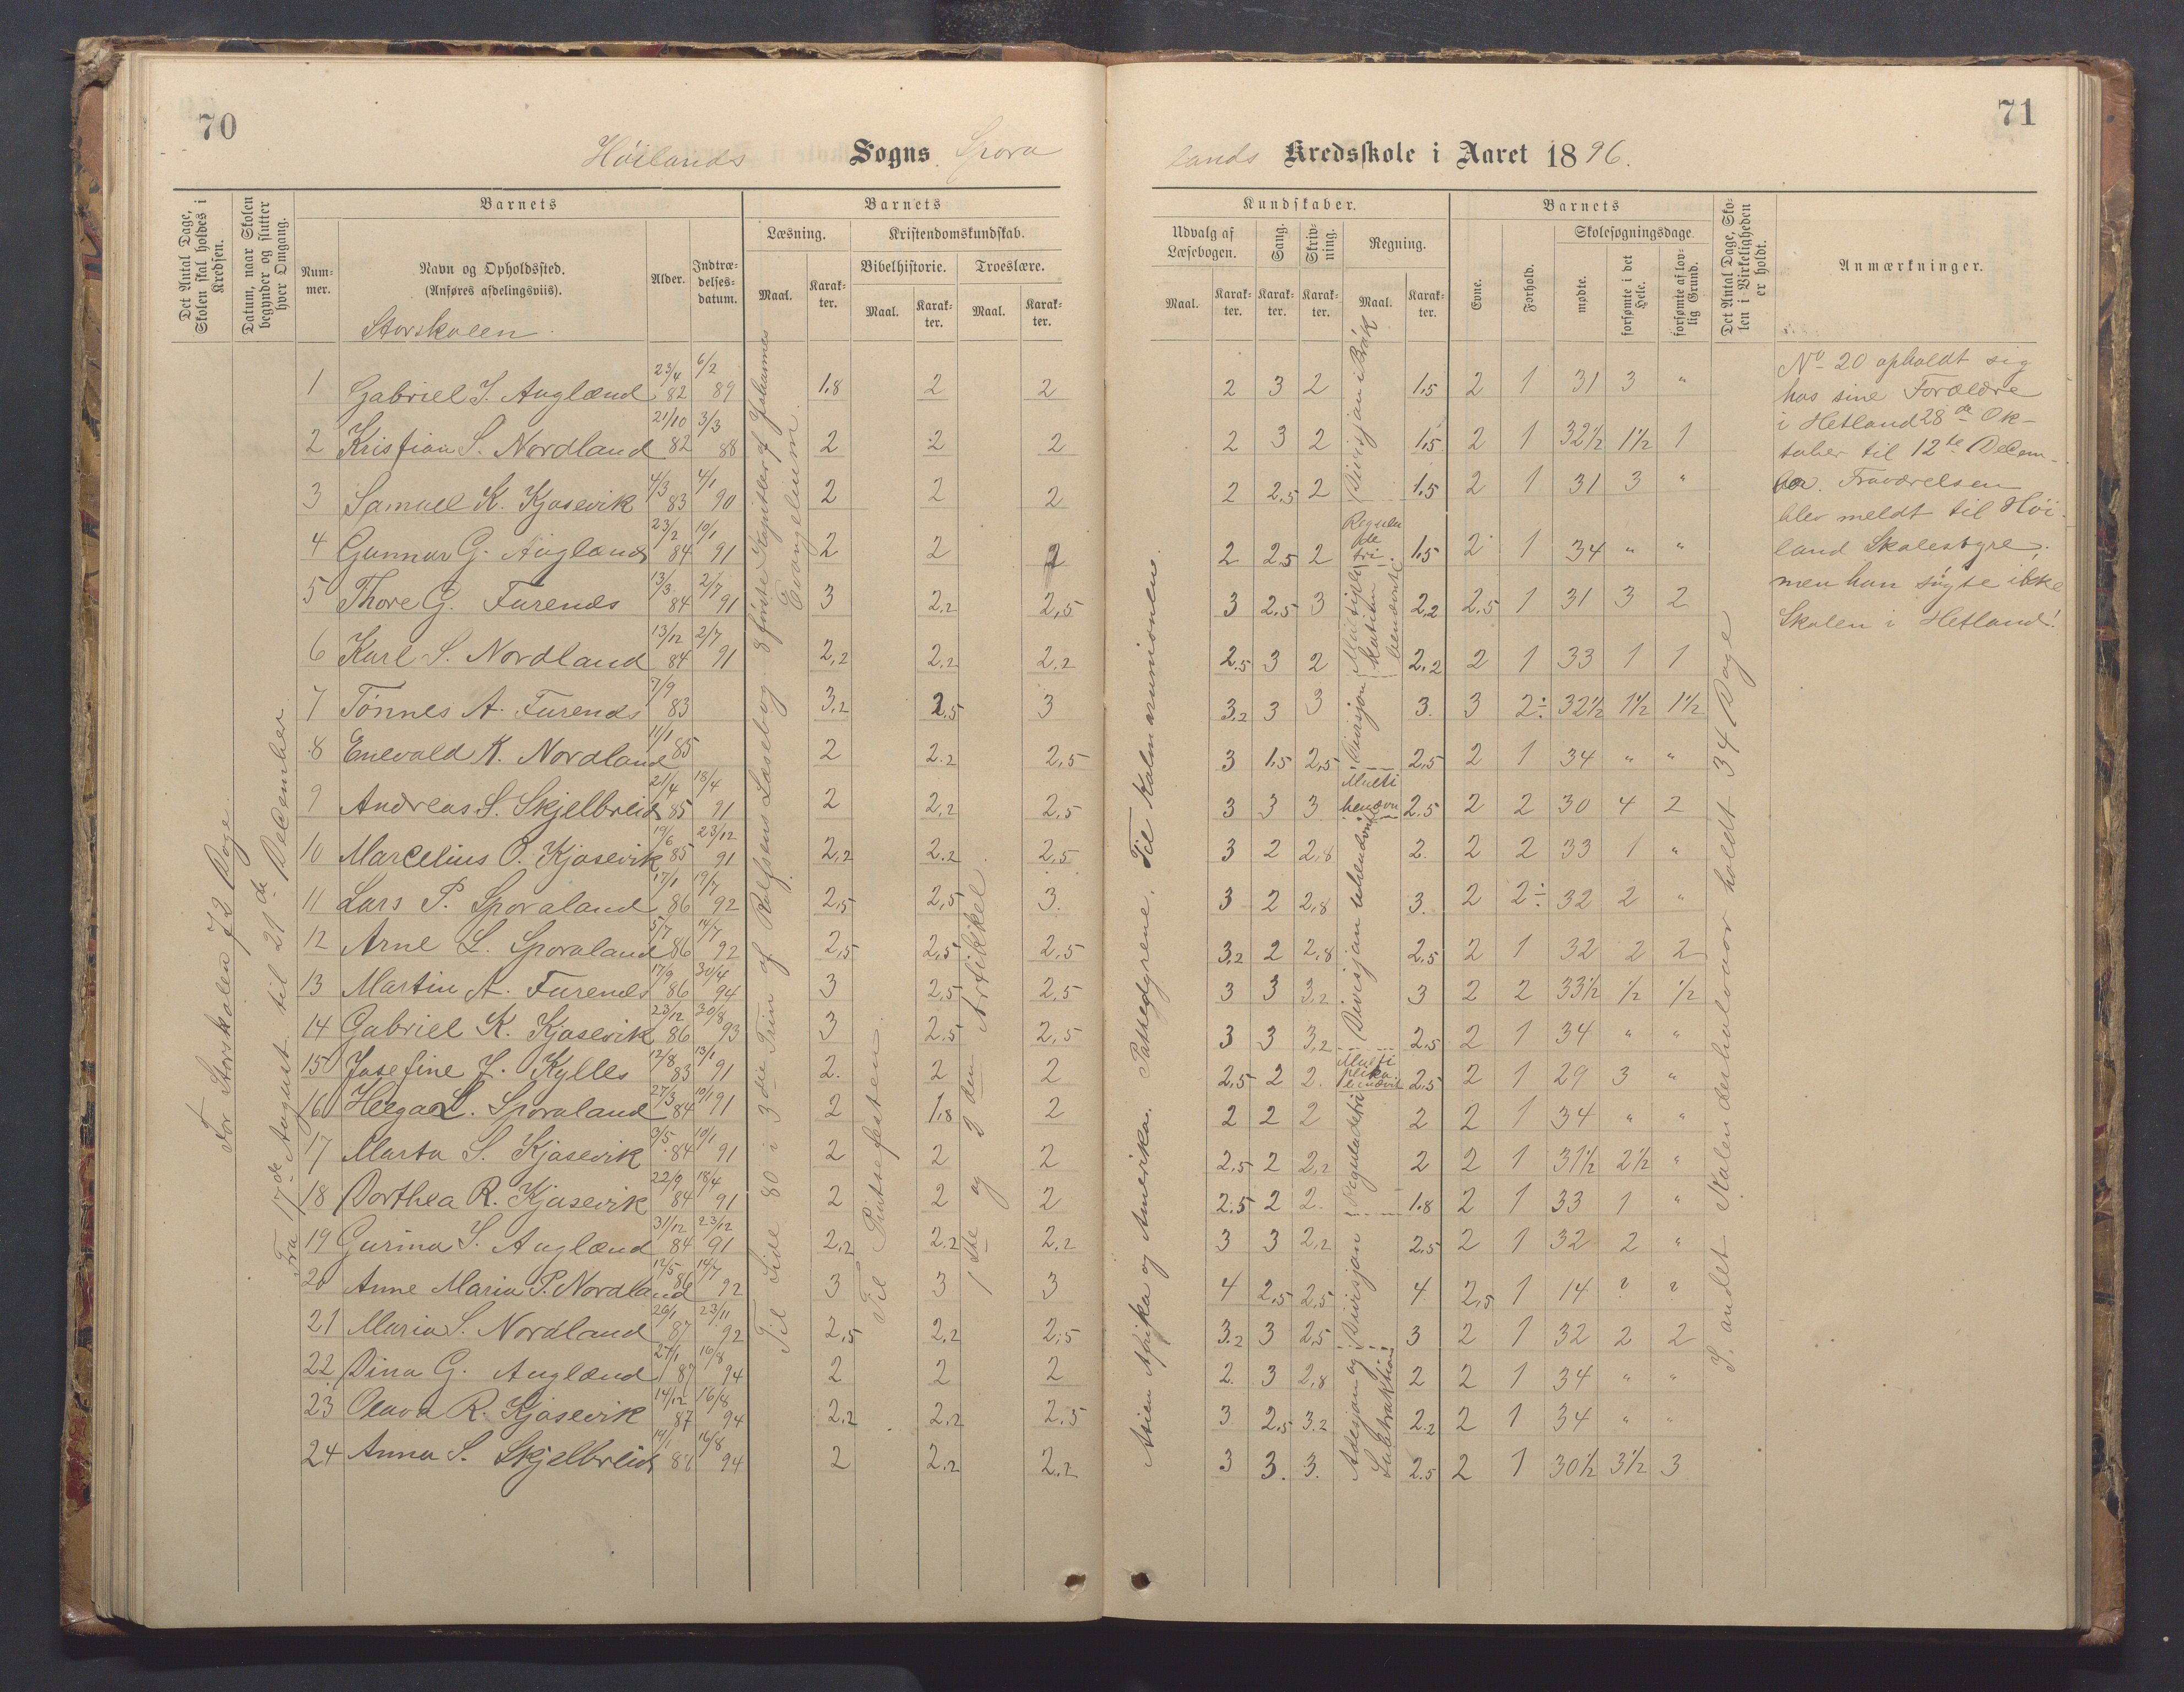 70
71
Höilands Sogns Spora
lands Kredsskole i Aaret 1896.
Det Antal Dage, Skolen skal holdes i Kredsen.
Datum, naar Skolen begynder og slutter hver Omgang.
Barnets
Num-mer.
Navn og Opholdssted.
(Anføres afdelingsviis).
Storskolen.
Alder.
Indtræ-delses-datum.
Barnets
Læsning.
Maal.
Karak-ter.
Kristendomskundskab.
Bibelhistorie.
Maal.
Karak-ter.
Troeslære.
Maal.
Karak-ter.
Kundskaber.
Udvalg af Læsebogen.
Maal.
Karak-ter.
Sang.
Karak-ter.
Skriv-ning.
Karak-ter.
Regning.
Maal.
Karak-ter.
Barnets
Evne.
Forhold.
Skolesøgningsdage.
mødte.
forsømte i det Hele.
forsømte af lov-lig Grund.
Det Antal Dage, Sko-len i Virkeligheden er holdt.
Anmærkninger.
For Storskolen 72 Dage.
Fra 17de August til 21de December
Til Side 80 i 3die Trin af Rolfsens Læsebog. 8 første Kapitler af Johannes Evangelium.
Til Pintsefesten.
1ste og 2den Artikkel
Asien Afrika og Amerika. Pattedyrene. Til Kalmarunionen.
Divisjon i Brøk
Regula de tri
Multipli-kation benævnte
Divisjon
Multi benævn
Divisjon ubenævnte
Multi plika. benævnt
Regula de tri
Divisjon
Adisjon og Subtraktion
I andet Skolen der halvaar holdt 34 Dage
1 Gabriel J. Auglænd 23/4 82 6/2 89 1.8 2 2 2 3 2 1.5 2 1 31 3 "
2 Kristian S. Nordland 21/10 82 3/3 88 2 2 2 2 3 2 1.5 2 1 32½ 1½ 1
3 Samuel K. Kjosevik 4/3 83 4/1 90 2 2 2 2 2.5 2 1.5 2 1 31 3 "
4 Gunnar G. Auglænd 23/2 84 10/1 91 2 2 2 2 2.5 2 1.5 2 1 34 " "
5 Thore G. Furenes 13/3 84 2/7 91 3 2.2 2.5 3 2.5 3 2.2 2.5 1 31 3 2
6 Karl S. Nordland 13/12 84 2/7 91 2.2 2.2 2.2 2.5 3 2 2.2 2 1 33 1 1
7 Tönnes A. Furenes 7/9 83 3.2 2.5 3 3.2 3 3 3. 3 2÷ 32½ 1½ 1½
8 Enevald K. Nordland 11/1 85 2 2.2 2.5 3 1.5 2.5 2.5 2 1 34 " "
9 Andreas S. Skjelbreid 21/4 85 18/4 91 2 2.2 2.5 3 3 3 2.5 2 2 30 4 2
10 Marcelius O. Kjosevik 19/6 85 23/12 91 2.2 2.2 2.5 3 2 2.8 2. 2 2 33 1 "
11 Lars P. Sporaland 17/1 86 19/7 92 2.5 2.5 3. 3 2 2.8 3. 2 2÷ 32 2 "
12 Arne L. Sporaland 5/7 86 14/7 92 2.5 2.5 2.5 3.2 2 2.8 2.5 2 1 32 2 2
13 Martin A. Furenes 17/9 86 30/4 94 3 2.5 2.5 3 3 3.2 3 2 2 33½ ½ ½
14 Gabriel K. Kjosevik 23/12 86 30/8 93 3 2.5 2.5 3 3 3.2 2.5 2 1 34 " "
15 Josefine J. Kylles 12/8 83 13/1 91 2. 2 2 2.5 2 2. 2.5 2 1 29 3 "
16 Helga L. Sporaland 27/3 84 10/1 91 2 1.8 2 2 2 2 2 2 1 34 " "
17 Marta S. Kjosevik 3/5 84 10/1 91 2 2 2 2.5 2 2.2 2 2 1 31½ 2½ "
18 Dorthea R. Kjosevik 22/9 84 18/4 91 2 2 2 2.5 2 2. 1.8 2 1 33 1 "
19 Gurina S. Auglænd 31/12 84 23/12 91 2.2 2.2 2.2 3 3 2.2 2.5 2 1 32 2 "
20 Anne Maria P. Nordland 12/5 86 14/7 92 3 3 3 4 2.5 2.5 4 2.5 1 14 ? ?
21 Maria S. Nordland 26/1 87 23/11 92 2.5 2.2 2.5 3.2 3 2.5 3 2 1 32 2 2
22 Dina G. Auglænd 27/1 87 16/8 94 2 2 2 2. 3 2.8 2 2 1 34 " "
23 Olava R. Kjosevik 14/12 87 16/8 94 2.2 2.2 2.5 3 2.5 3.2 2.2 2 1 34 " "
24 Anna S. Skjelbreid 19/1 86 16/8 94 2 2.2 2.2 3 3. 3. 2.5 2 1 30½ 3½ 3
No 20 opholdt sig
hos sine Forældre
i Hetland 28de Ok-
tober til 12te Decem-
ber. Fraværelsen
blev meldt til Höi-
land Skolestyre,
men hun sögte ikke
Skolen i Hetland!